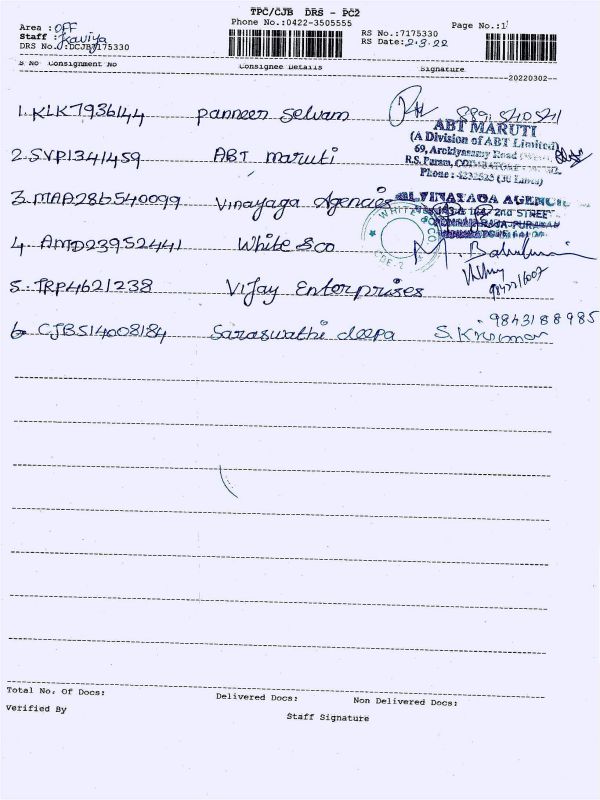 TPC/CJB DRS - PC2
Phone No.:0422-3505555
Page No.:1
Area : OFF
Staff : Kaviya
DRS No.:DCJB7175330
RS No.:7175330
RS Date:2.3.22
S No Consignment No Consignee Details Signature
20220302
1. KLK7936144 panneer selvam
2. SVP1341459 ABT maruti
ABT MARUTI
(A Division of ABT Limited)
69, Arokiyasamy Road
R.S. Puram,
3. MAA286540099 Vinayaga Agencies
VINAYAGA AGENCIES
2nd STREET
4. AMD23952441 White & co
WHITE & CO
CBE-2
5. TRP4621238 Vijay Enterprises
6 CJB514008184 Saraswathi deepa S.Kumar
9843188985
Total No. Of Docs: Delivered Docs: Non Delivered Docs:
Verified By
Staff Signature